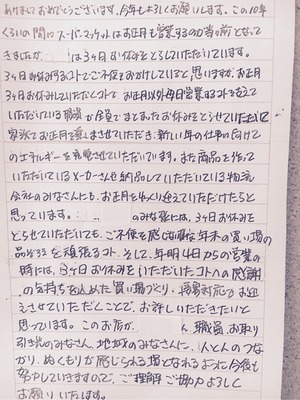 あけましておめでとうございます。今年もよろしくお願いします。この10年
くらいの間にスーパーマーケットはお正月も営業するのが当り前となって
きましたが、　は3日お休みをとらせていただいています。
3日お休みするコトでご不便をおかけしていると思いますが、お正月
3日お休みしていただくコトで、お正月以外毎日営業するコトを支えて
いただいている職員が全員でまとまったお休みをとらせていただいて
家族でお正月を楽しませていただき、新しい年の仕事に向けて
のエネルギーを充電させていただいています。また商品を作って
いただいているメーカーさんや納品していただいている物流
会社のみなさんにも、お正月をゆっくり迎えていただけたらと
思っています。　のみなさまには、3日お休みを
とらせていただいても、ご不便を感じぬ年末の買い場の
品ぞろえを頑張るコト、そして、年明4日からの営業の
時には、3日お休みをいただいたコトへの感謝
の気持ちを込めた買い場づくり、接客対応でお迎え
させていただくことで、お許しいただきたいと
思っています。このお店が、　ん、職員、お取り
引き先のみなさん、地域のみなさんに、人と人のつな
がり、ぬくもりが感じられる場となれるように今後も
努力していきますので、ご理解ご協力よろしく
お願いいたします。